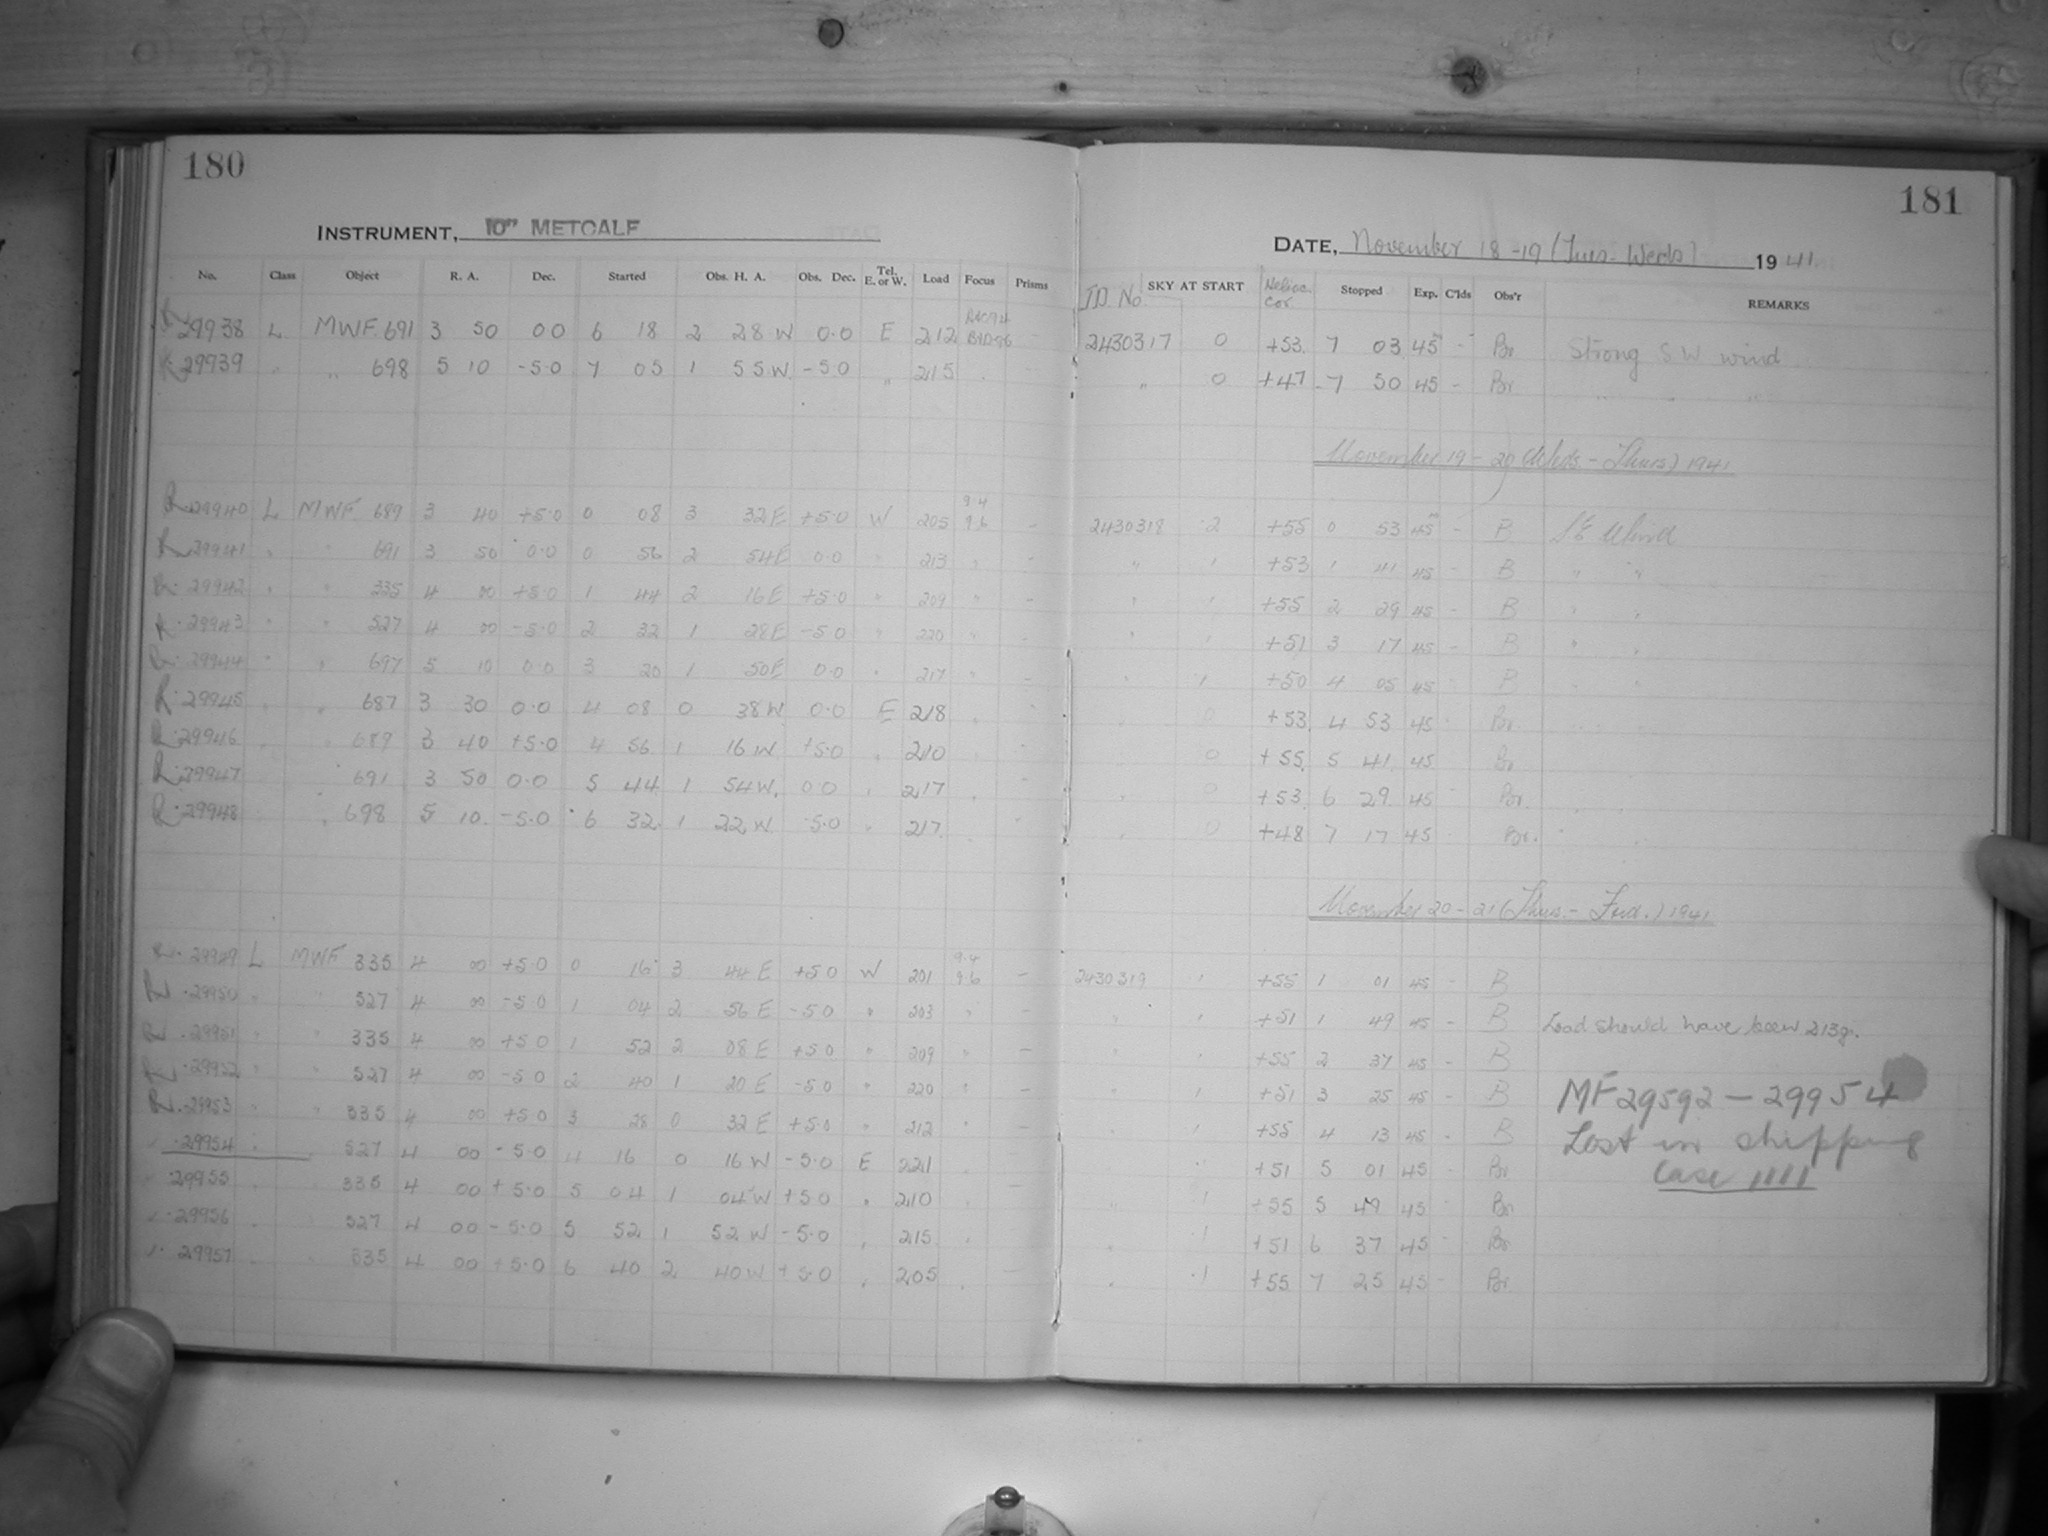 180
INSTRUMENT, 10" METCALF
No. Class Object R. A. Dec. Started Obs. H. A. Obs. Dec. Tel. E. or W. Load Focus Prisms
29938 L MWF 691 3 50 00 6 18 2 28 W 0.0 E 212
29939 " 698 5 10 -5.0 7 05 1 55 W -5.0 " 215
29940 L MWF 689 3 40 +5.0 0 08 3 32 E +5.0 W 205 9.4 9.6 -
29941 " " 691 3 50 0.0 0 56 2 54 E 0.0 " 213 " -
29942 " " 335 4 00 +5.0 1 44 2 16 E +5.0 " 209 " -
29943 " " 527 4 00 -5.0 2 32 1 28 E -5.0 " 220 " -
29944 " " 697 5 10 0.0 3 20 1 50 E 0.0 " 217 " -
29945 " " 687 3 30 0.0 4 08 0 38 W 0.0 E 218
29946 " 689 3 40 +5.0 4 56 1 16 W +5.0 " 210
29947 " 691 3 50 0.0 5 44 1 54 W. 0.0 " 217
29948 " 698 5 10. -5.0 6 32 1 22 W -5.0 " 217
29949 L MWF 335 4 00 +5.0 0 16 3 44 E +5.0 W 201 9.4 9.6 -
29950 " " 527 4 00 -5.0 1 04 2 56 E -5.0 " 203 " -
29951 " " 335 4 00 +5.0 1 52 2 08 E +5.0 " 209 " -
29952 " " 527 4 00 -5.0 2 40 1 20 E -5.0 " 220 " -
29953 " " 335 4 00 +5.0 3 28 0 32 E +5.0 " 212 " -
29954 527 4 00 -5.0 4 16 0 16 W -5.0 E 221
29955 335 4 00 +5.0 5 04 1 04 W +5.0 " 210
29956 527 4 00 -5.0 5 52 1 52 W -5.0 " 215
29957 335 4 00 +5.0 6 40 2 40 W +5.0 " 205
181
DATE, November 18-19 (Tues-Weds) 1941
J.D. No. SKY AT START Helioc. Cor. Stopped Exp. C'lds Obs'r REMARKS
2430317 0 +53 7 03 45 - Br Strong S W wind
" 0 +47 7 50 45 - Br " " "
November 19-20 (Weds-Thurs) 1941
2430318 2 +55 0 53 45 - B S E Wind
" 1 +53 1 41 45 - B " "
" 1 +55 2 29 45 - B " "
" 1 +51 3 17 45 - B " "
" 1 +50 4 05 45 - B " "
" 0 +53 4 53 45 Br
" 0 +55 5 41 45 Br
" 0 +53 6 29 45 Br.
" 0 +48 7 17 45 Br.
November 20-21 (Thurs.-Frid.) 1941
2430319 1 +55 1 01 45 - B
" 1 +51 1 49 45 - B Load should have been 213g.
" 1 +55 2 37 45 - B
" 1 +51 3 25 45 - B
" 1 +55 4 13 45 - B
+51 5 01 45 Br
" 1 +55 5 49 45 Br
" 1 +51 6 37 45 Br
" 1 +55 7 25 45 Br
MF 29592-29954
Lost in shipping
Case 1111